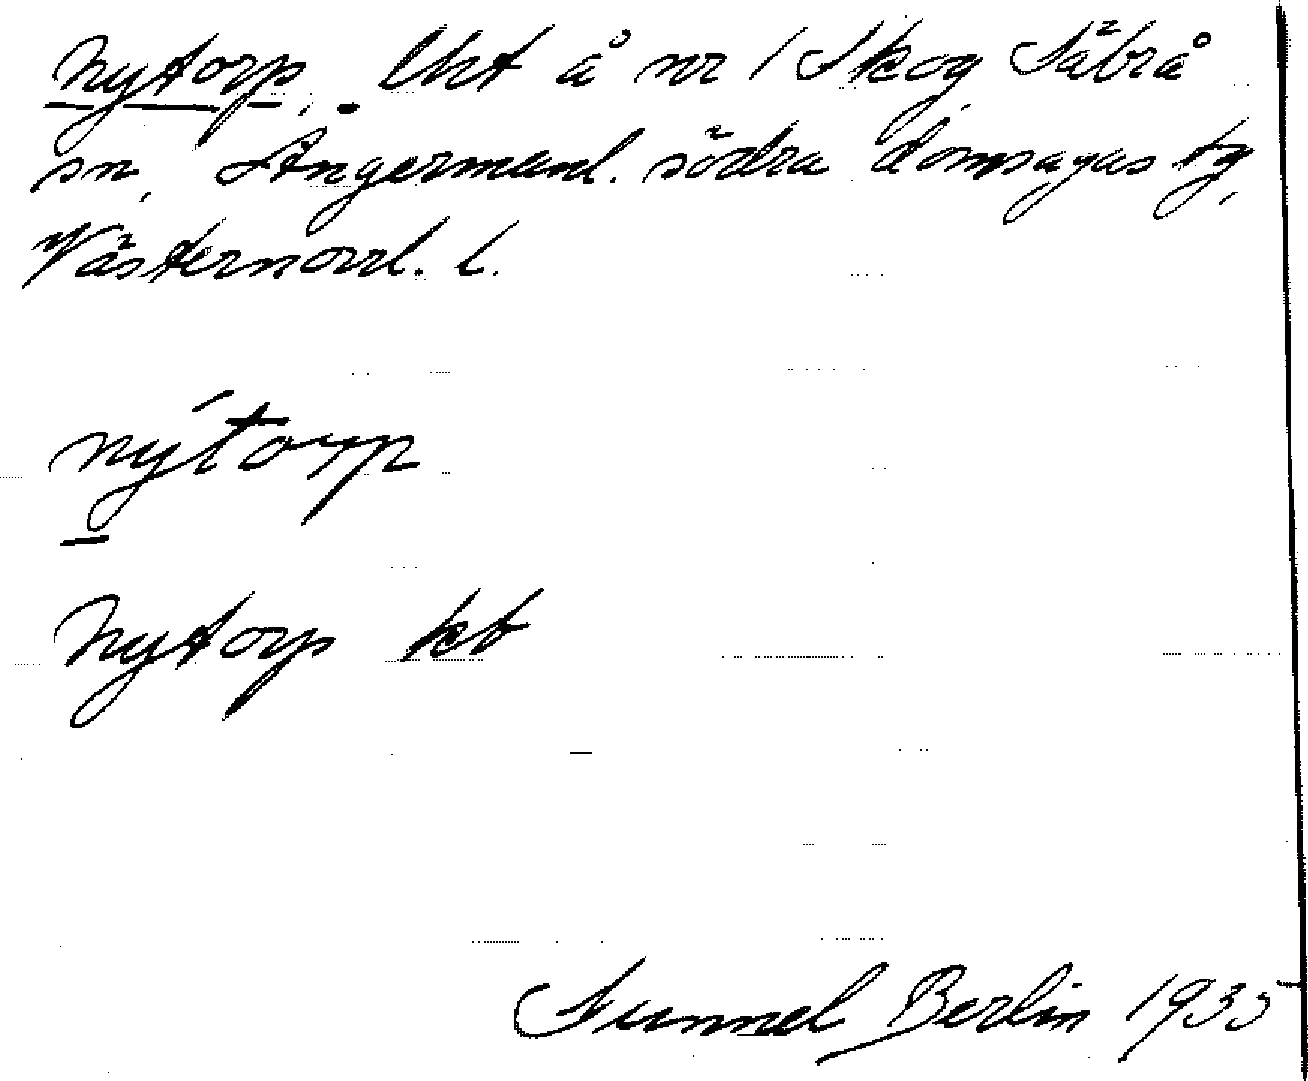 Nytorp, lht å nr 1 Skog Säbrå
sn, Ångermanl. södra domsagas tg,
Västernorrl. l.
nýtorp
Nytorp kb
Gunnel Berlin 1935